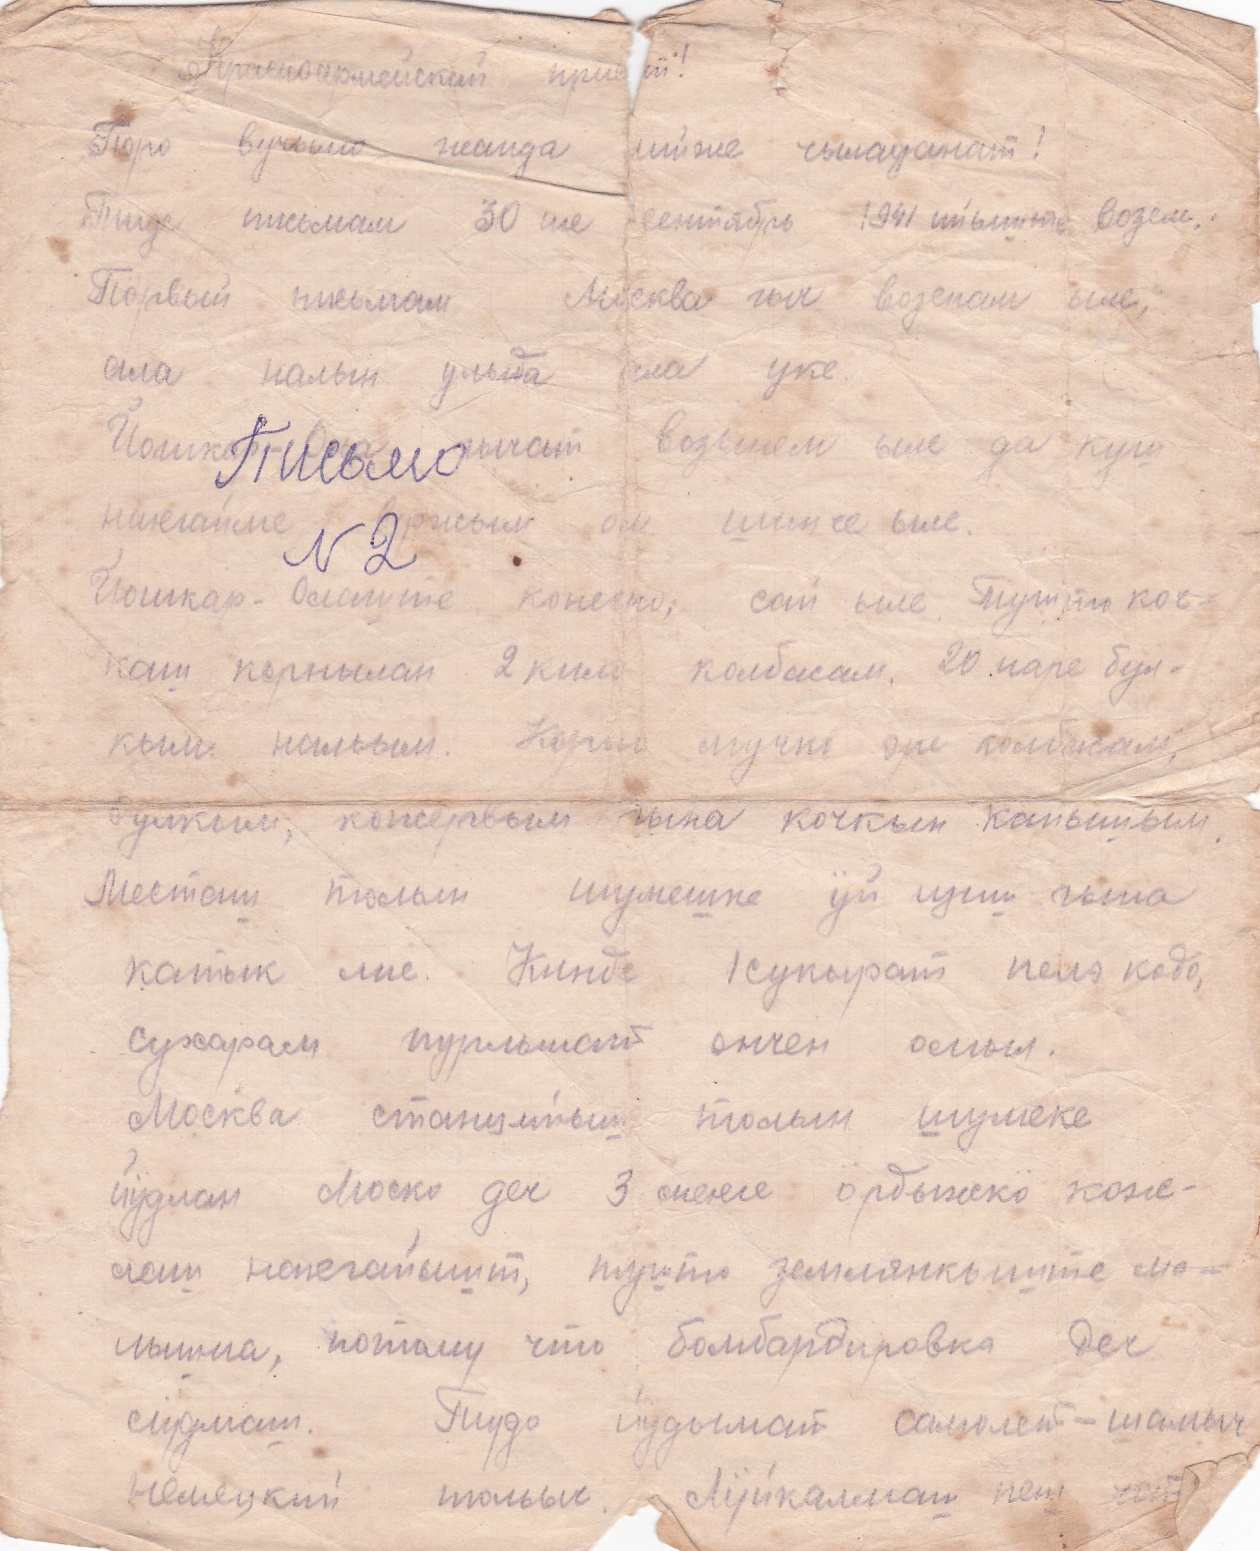 Красноармейский привет!
Поро вучымо жапда лийже чыладанат!
Тиде письмам 30 ше сентябрь 1941 ийыште возем.
Первый письмам Москва гыч возенам ыле,
ала налын улыда ала уке.
Йошкар-Ола гычат возынем ыле да куш
Письмо
наҥгайме вержым ом шинче ыле.
N 2
Йошкар-Олаште конечно, сай ыле. Тушто коч-
каш корнылан 2 кило колбасам, 20 наре бул-
кым нальым. Корно мучко эре колбасам,
булкым, консервым гына кочкын каенна.
Месташ толын шумешке ӱй гына
катык лие. Кинде 1 сукырат пеле кодо,
сухарам пурлынат ончен омыл.
Москва станцийыш толын шумеке
йӱдлан Моско деч 3 меҥге ӧрдыжкӧ кож-
лаш наҥгайышт, тушто землянкыште ма-
лышна, потому что бомбардировка деч
лӱдмаш. Тудо йӱдымат самолет-шамыч
немецкий тольыч. Лӱйкалмаш пеш чот